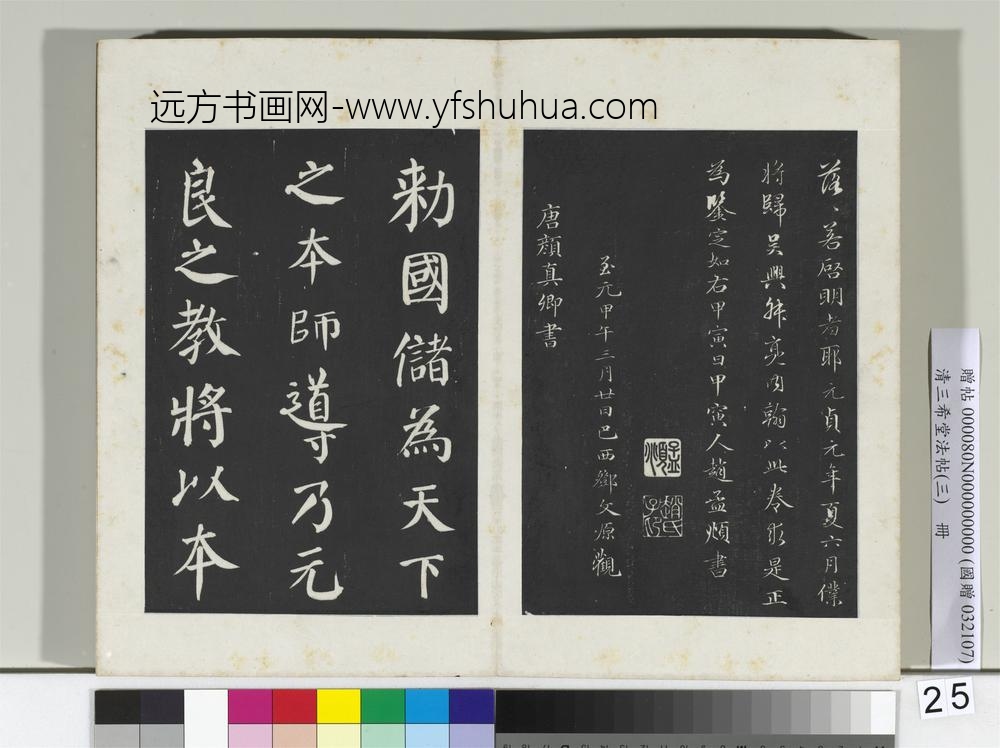 远方书画网-www.yfshuhua.com
落〻若啓明者耶元貞元年夏六月僕
將歸吳興舜亮内翰以此卷求是正
為鑒定如右甲寅日甲寅人趙孟頫書
至元甲午三月廿日巴西鄧文源觀
唐顏真卿書
勅國儲為天下
之本師導乃元
良之教將以本
贈帖 000080N000000000 (國贈 032107)
清三希堂法帖(三) 冊
25